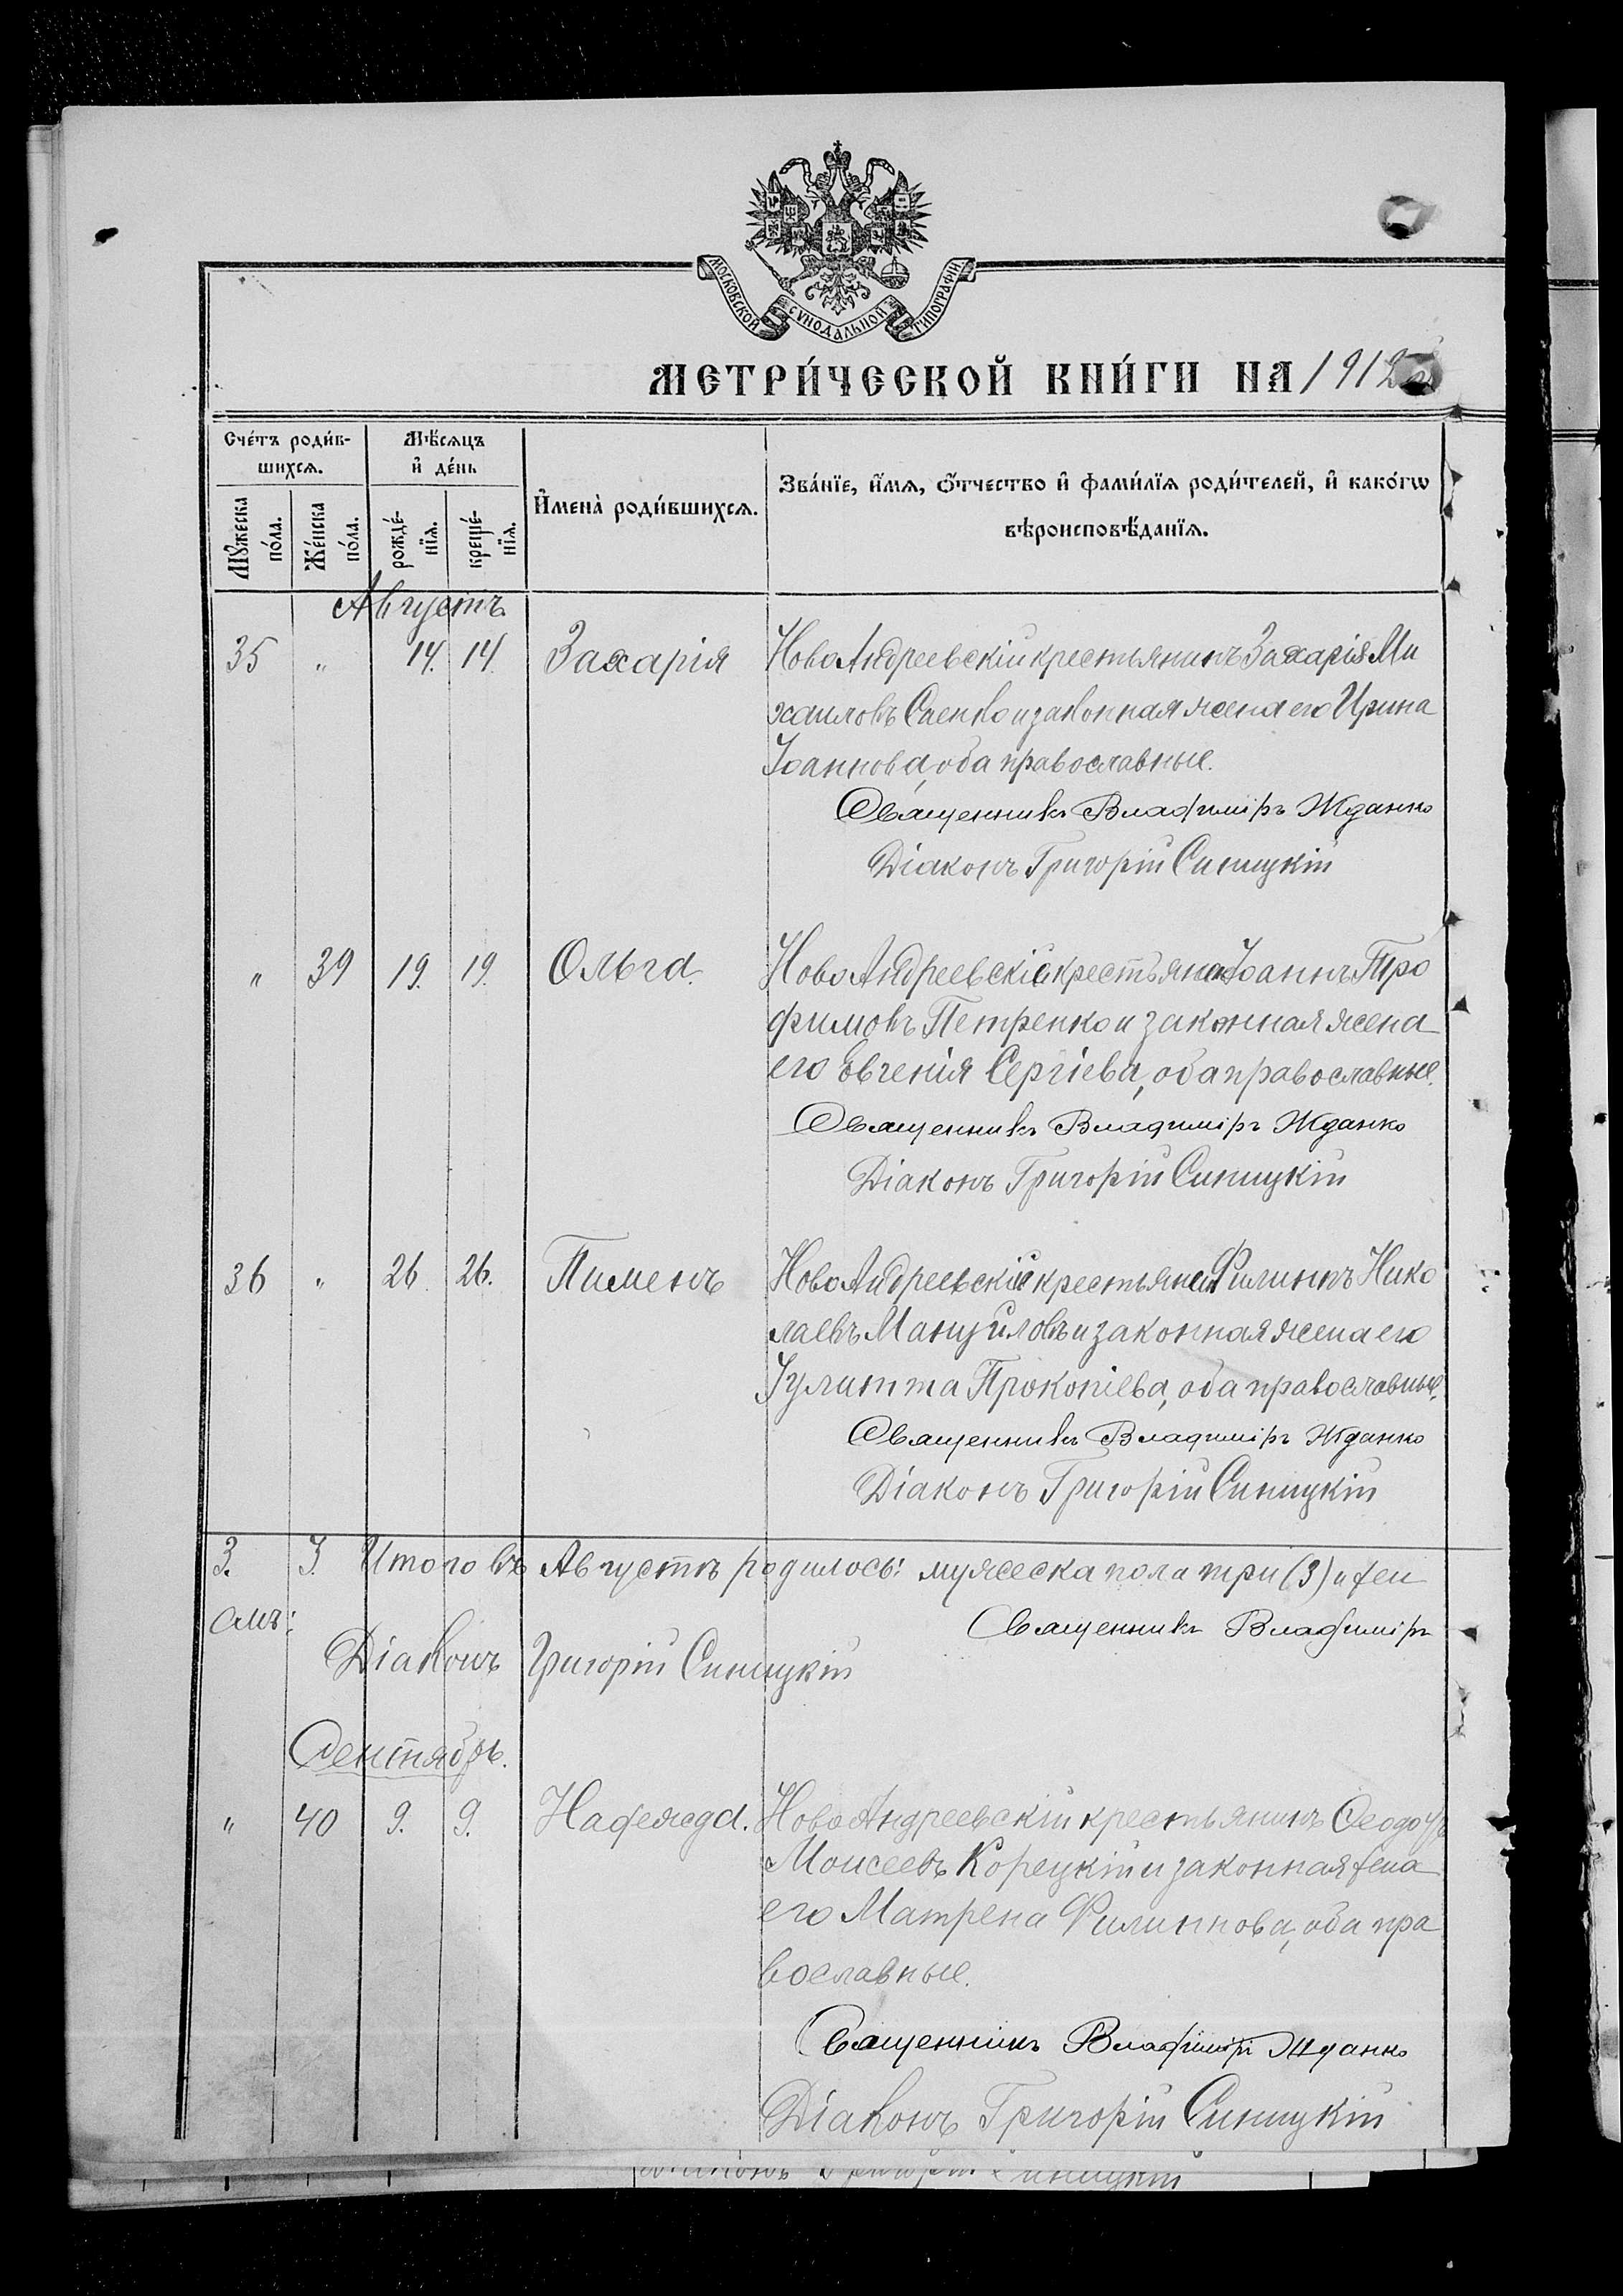 МОСКОВСКОЙ СУНОДАЛЬНОЙ ТИПОГРАФІИ
МЕТРИ́ЧЕСКОЙ КНИ́ГИ НА 1912
Сче́тъ роди́в-
шихсѧ.
Мѣ́сѧцъ
и҆ де́нь
И҆мена̀ роди́вшихсѧ.
Зва́нїе, и҆́мѧ, ѻ҆́тчество и҆ фами́лїѧ роди́телей, и҆ како́гѡ
вѣроисповѣ́данїѧ.
Мꙋ́жеска
по́ла.
Же́нска
по́ла.
рожде́-
нїѧ.
креще́-
нїѧ.
Августъ.
35 " 14. 14. Захарія НовоАндреевскій крестьянинъ Захарія Ми
хаиловъ Саенко и законная жена его Ирина
Іоаннова, оба православные.
Священникъ Владиміръ Жданко
Діаконъ Григорій Синицкій
" 39 19. 19. Ольга. НовоАндреевскій крестьянинъ Іоаннъ Тро
фимовъ Петренко и законная жена
его Евгенія Сергіева, оба православные.
Священникъ Владиміръ Жданко
Діаконъ Григорій Синицкій
36 " 26. 26. Пименъ НовоАндреевскій крестьянинъ Филиппъ Нико
лаевъ Мануйловъ и законная жена его
Іулитта Прокопіева, оба православные.
Священникъ Владиміръ Жданко
Діаконъ Григорій Синицкій
3. 3. Итого въ Августѣ родилось: мужеска пола три (3) и жен
Священникъ Владиміръ
Діаконъ Григорій Синицкій
Сентябрь.
" 40 9. 9. Надежда. НовоАндреевскій крестьянинъ Ѳеодоръ
Моисеевъ Корецкій и законная жена
его Матрена Филиппова, оба пра
вославные.
Священникъ Владиміръ Жданко
Діаконъ Григорій Синицкій